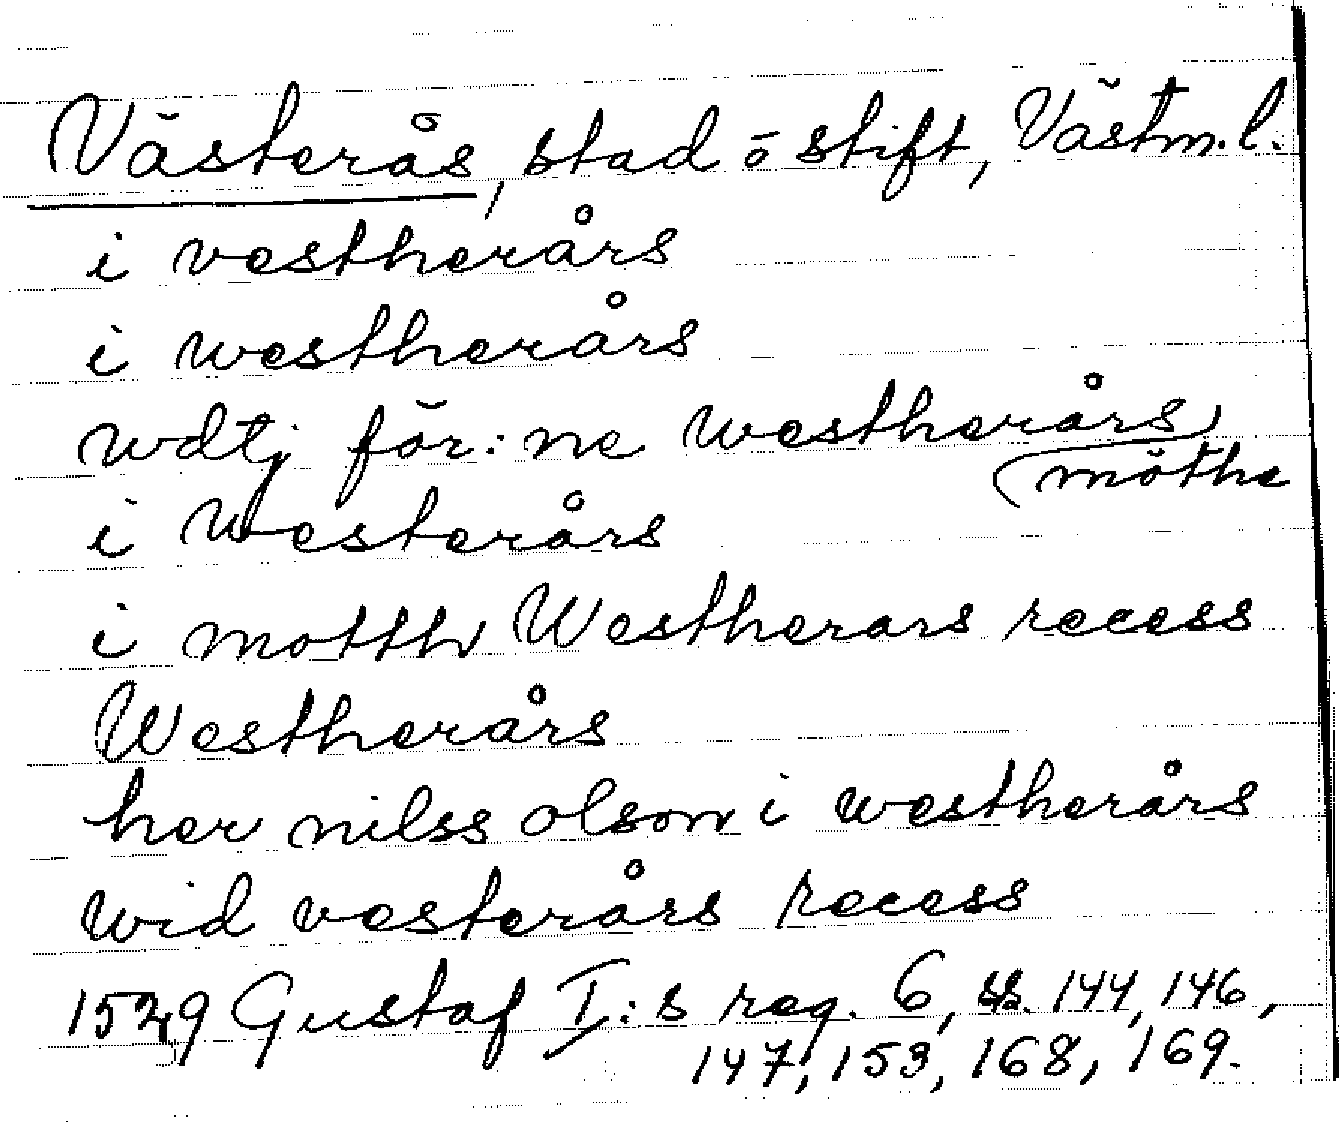 Västerås, stad o stift, Västm. l.
i vestherårs
i westherårs
wdtj för:ne westherårs
möthe
i Westerårs
i motth Westherars recess
Westherårs
her nilss olson i westherårs
wid vesterårs recess
1529 Gustaf I:s reg. 6, ss. 144, 146,
147, 153, 168, 169.